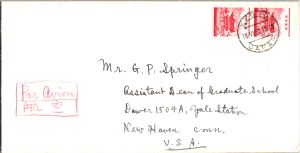 Par Avion
航空
Mr. G. P. Springer
Assistant Dean of Graduate School
Dawer 1504A, Yale Station
New Haven, Conn.
U. S. A.
JAPAN